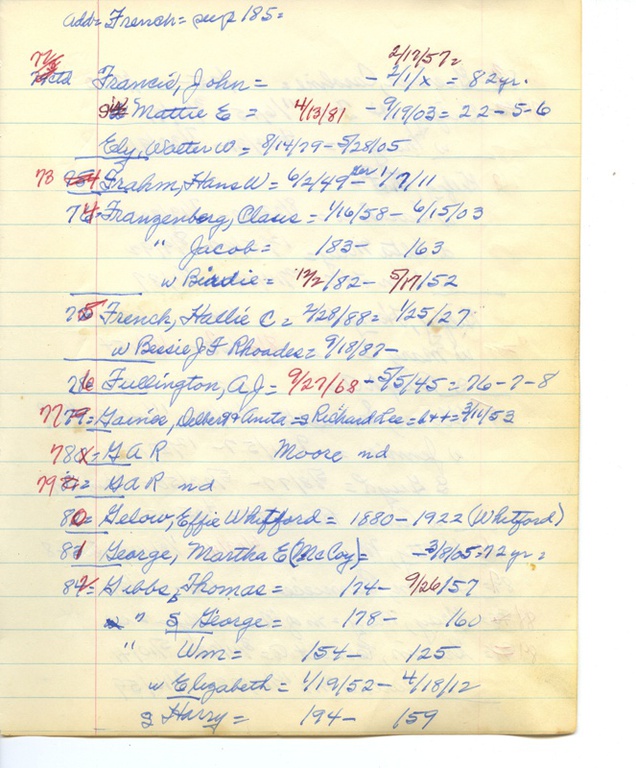 add= French = sup 185=
2/17/57=
72 Francis, John = - 2/1/x = 82yr.
Mattie E = 4/13/81 - 9/19/03 = 22-5-6
Ely, Walter W = 8/14/79 - 5/28/05
73 Frahm, Hans W = 6/2/49 - 1/7/11
74 Franzenberg, Claus = 1/16/58 - 6/15/03
" Jacob = 183- 163
w Birdie = 12/2/82 - 5/17/52
75 French, Hallie C = 2/28/88 = 1/25/27
w Bessie J F Rhoades = 9/18/87-
76 Fullington, A J = 9/27/68 - 5/5/45 = 76-7-8
77 = Gaines, Delbert & Anita = s Richard Lee = b++ = 3/11/53
78 = G A R Moore nd
79 = G A R nd
80 = Gelow, Effie Whitford = 1880 - 1922 (Whitford)
81 George, Martha E (McCoy) = - 3/8/05 = 72yr =
82 = Gibbs, Thomas = 174- 9/26/57
" S George = 178- 160
" Wm = 154- 125
w Elizabeth = 1/19/52 - 4/18/12
s Harry = 194- 159